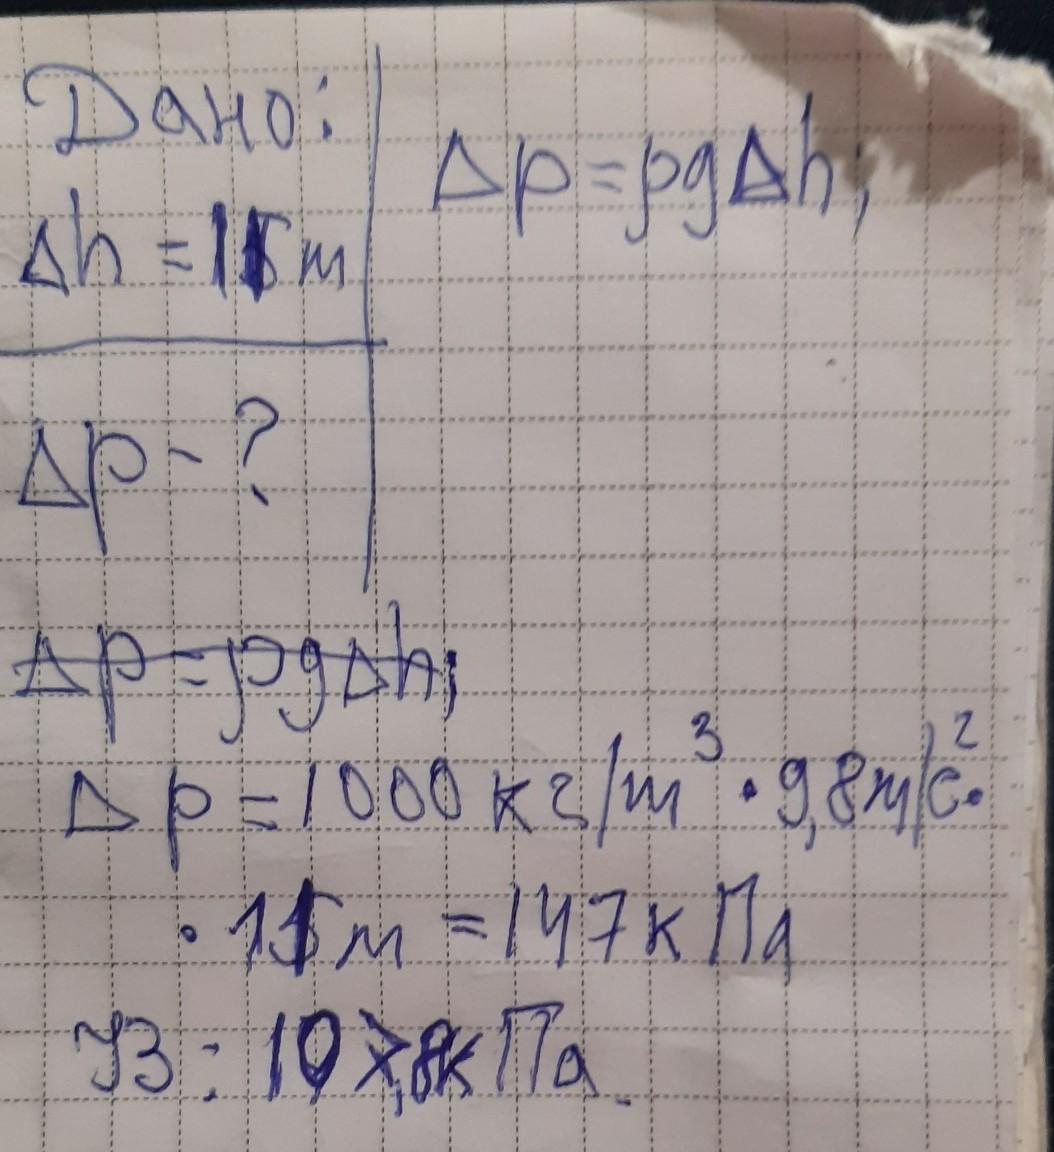 Дано:
Δh = 11 м
Δp - ?
Δp = ρgΔh;
Δp = ρgΔh;
Δp = 1000 кг/м³ · 9,8 м/с² ·
· 11 м = 147 кПа
УЗ: 107,8 кПа.